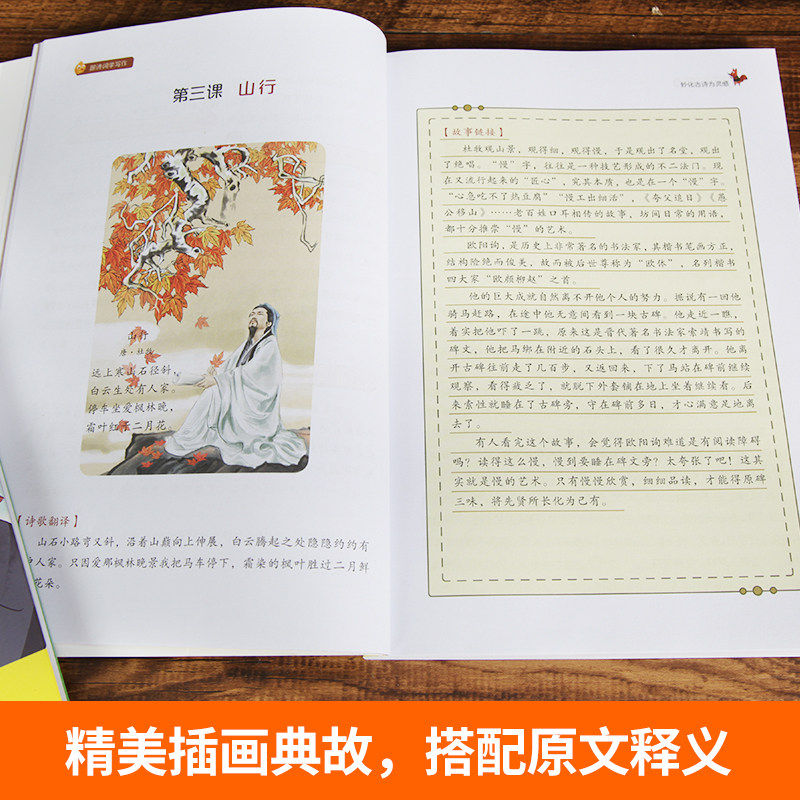 跟诗词学写作
第三课 山行
山行
唐·杜牧
远上寒山石径斜，
白云生处有人家。
停车坐爱枫林晚，
霜叶红于二月花。
【诗歌翻译】
山石小路弯又斜，沿着山巅向上伸展，白云腾起之处隐隐约约有
人家。只因爱那枫林晚景我把马车停下，霜染的枫叶胜过二月鲜
花朵。
妙化古诗为灵感
【故事链接】
杜牧观山景，观得细，观得慢，于是观出了名堂，观出
了绝唱。“慢”字，往往是一种技艺形成的不二法门。现
在又流行起来的“匠心”，究其本质，也是在一个“慢”字。
“心急吃不了热豆腐”“慢工出细活”，《夸父追日》《愚
公移山》……老百姓口耳相传的故事，坊间日常的用语，
都十分推崇“慢”的艺术。
欧阳询，是历史上非常著名的书法家，其楷书笔画方正，
结构险绝而俊美，故而被后世尊称为“欧体”，名列楷书
四大家“欧颜柳赵”之首。
他的巨大成就自然离不开他个人的努力。据说有一回他
骑马赶路，在途中他无意间看到一块古碑。他走近一瞧，
着实把他吓了一跳，原来这是晋代著名书法家索靖书写的
碑文，他把马绑在附近的石头上，看了很久才离开。他离
开古碑往前走了几百步，又返回来，下了马站在碑前继续
观察，看得疲乏了，就脱下外套铺在地上坐着继续看。后
来索性就睡在了古碑旁，守在碑前多日，才心满意足地离
去了。
有人看完这个故事，会觉得欧阳询难道是有阅读障碍
吗？读得这么慢，慢到要睡在碑文旁？太夸张了吧！这其
实就是慢的艺术。只有慢慢欣赏，细细品读，才能得原碑
三味，将先贤所长化为己有。
精美插画典故，搭配原文释义